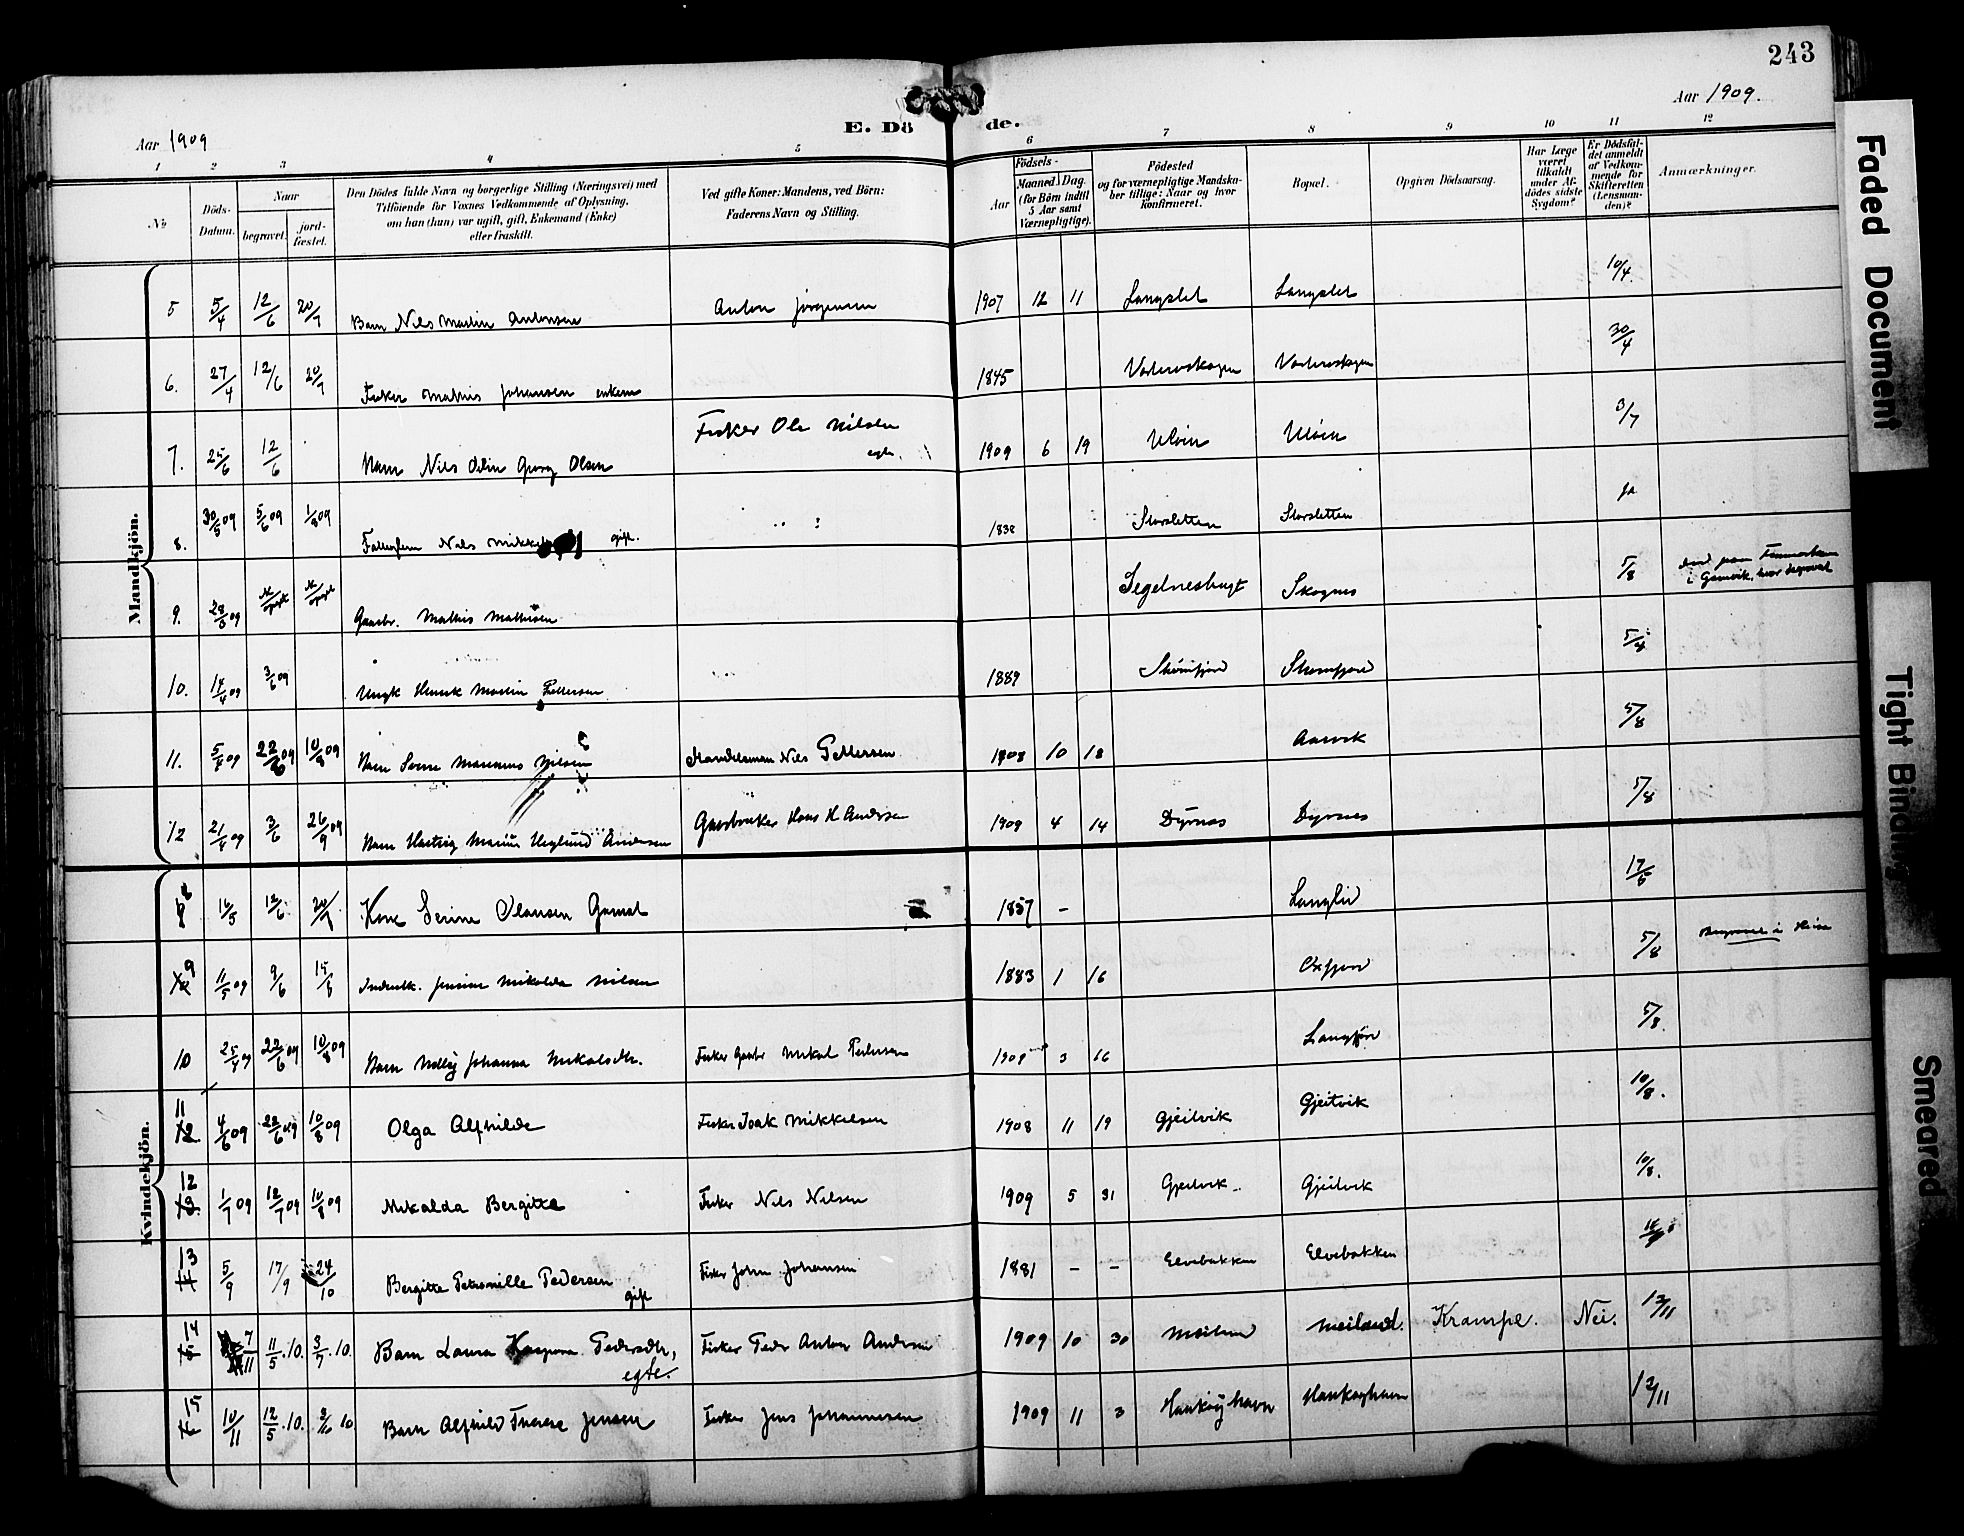 243
Aar 1909
Aar 1909.
E. Dö de.
1 2 3 4 5 6 7 8 9 10 11 12
No
Döds-
Datum.
Naar
begravet.
jord-
fæstet.
Den Dödes fulde Navn og borgerlige Stilling (Næringsvei) med
Tilföiende for Voxnes Vedkommende af Oplysning,
om han (hun) var ugift, gift, Enkemand (Enke)
eller fraskilt.
Ved gifte Koner: Mandens, ved Börn:
Faderens Navn og Stilling.
Födsels-
Aar
Maaned. Dag.
(for Börn indtil
5 Aar samt
Værnepligtige).
Födested
og for værnepligtige Mandska-
ber tillige: Naar og hvor
konfirmeret.
Bopæl.
Opgiven Dödsaarsag.
Har Læge
været
tilkaldt
under Af-
dödes sidste
Sygdom?
Er Dödsfal-
det anmeldt
af Vedkom-
mende for
Skifteretten
(Lensman-
den)?
Anmærkninger.
Mandkjön.
5 5/4 12/6 20/7 Barn Nils Martin Antonsen Anton Jörgensen 1907 12 11 Langslet Langslet 10/4.
6. 27/4 12/6 20/7 Fisker Mathis Johansen enkem 1845 30/4
7. 25/6 12/6 Barn Nils Odin Georg Olsen Fisker Ole Nilsen egte. 1909 6 19 Uløen Uløen 3/7
8. 30/5 09 5/6 09 Nils gift. 1838 Storsletten Storsletten ja
9. 09 Gaardbr. Mathis Mathisen Segelneshugt Skognes 5/8
i Gamvik, hvor begravet
10. 14/4 09 3/6 09 Ungk Henrik Martin Pettersen 1889 5/8
11. 09 22/6 09 10/8 09 Barn Marenus Nilsen Handelsman Nils Pettersen 1908 10 18 Aarvik 5/8
12 21/ 09 3/6 26/9 09 Barn Hartvig Haglund Andersen Gaardbruker Hans H Andersen 1909 4 14 Dyrnes Dyrnes 5/8
Kvindekjön.
8 16/5 12/6 20/7 Kone Serine Olausen Gamst 1857 – Langlid 17/6
9 11/5 09 9/6 15/8 Mikalda Nilsen 1883 1 16 Oxfjord 5/8 Begravet i
10 09 22/6 09 10/8 09 Barn Johanna Mikalsdtr. Fisker Gaardbr Mikal Pedersen 1909 3 16 5/8.
11 4/6 09 22/6 09 10/8 09 Olga Alfhilde Fisker Isak Mikkelsen 1908 11 19 Gjeitvik Gjeitvik 10/8.
12 1/7 09 12/7 09 10/8 09 Mikalda Bergitte Fisker Nils Nilsen 1909 5 31 Gjeitvik Gjeitvik 10/8.
13 5/9 17/9 24/10 Bergitte Petronille Pedersen gift Fisker John Johansen 1881 – – Elvebakken Elvebakken
14 7/11 11/5.10. 3/7.10. Barn Laura Kaspara Pedersdtr, egte. Fisker Peder Anton Andersen 1909 10 30 Meiland. Krampe. Nei. 12/11
15 10/11 12/5.10. 10. Barn Alfhild Therese Jensen Fisker Jens Johannesen 1909 11 3 Haukøyhavn Haukøyhavn 12/11
Faded Document
Tight Binding
Smeared